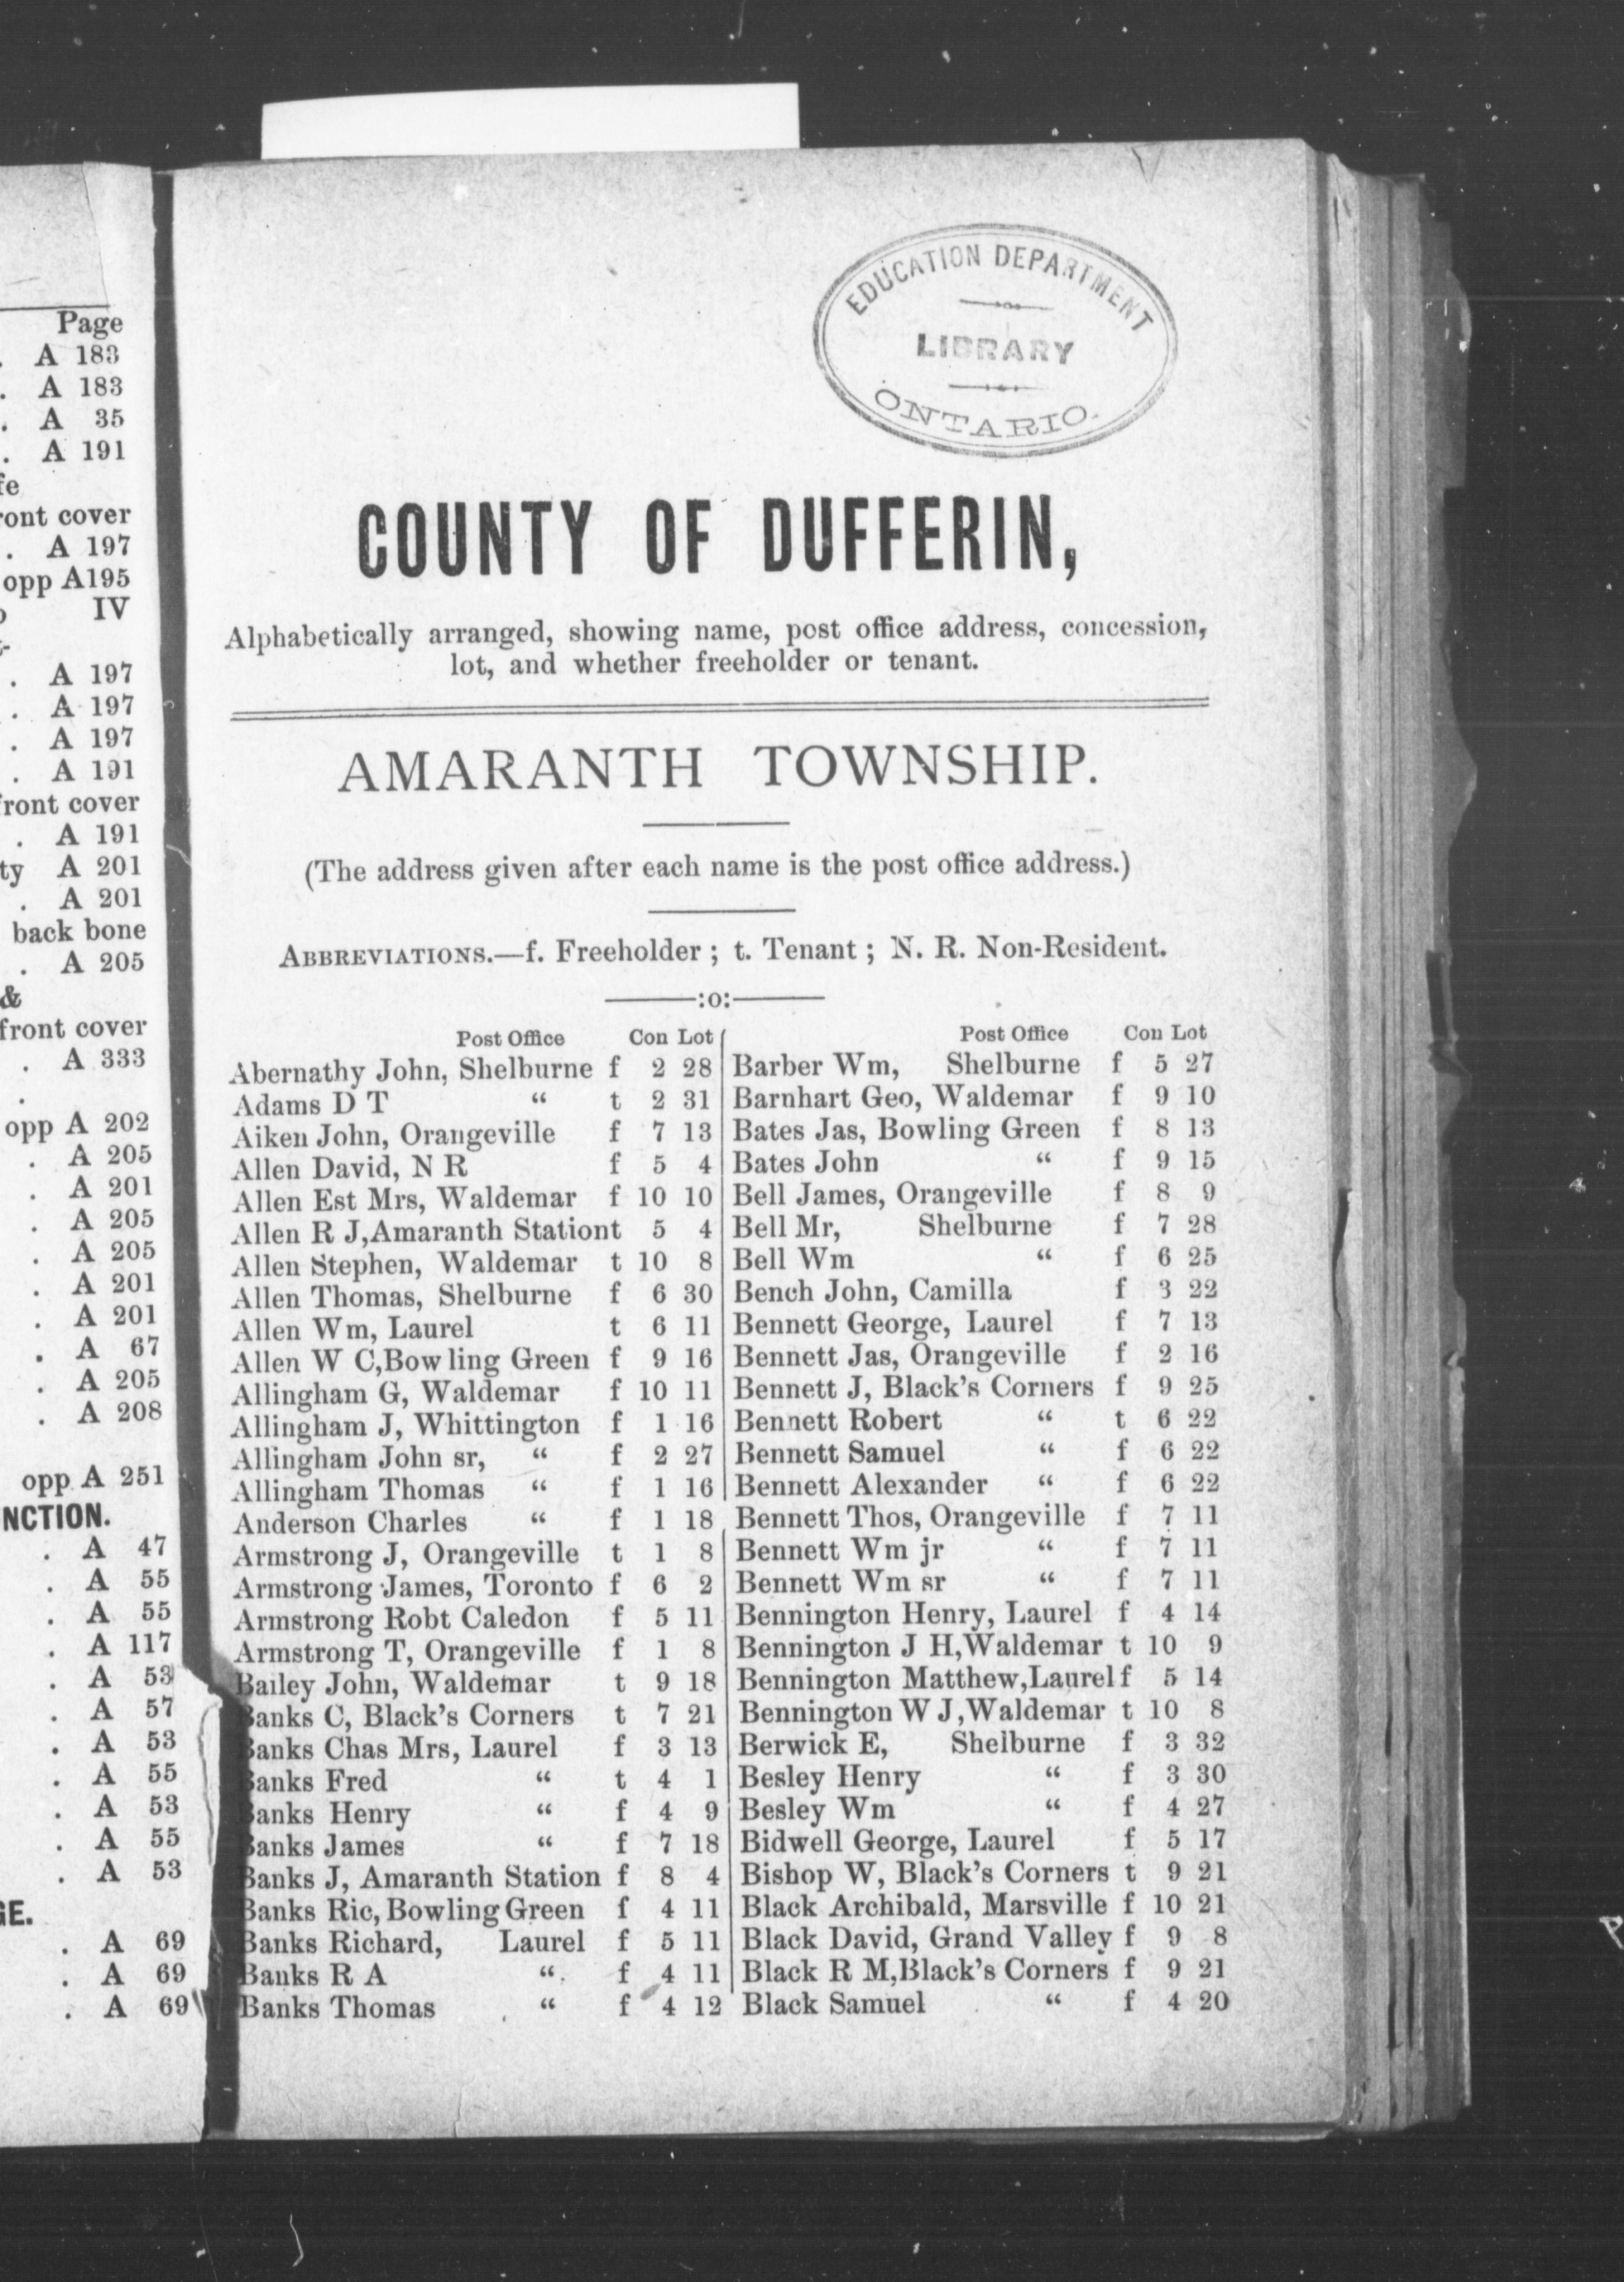 Page
. A 183
. A 183
. A 35
. A 191
fe
ront cover
. A 197
opp A195
IV
. A 197
. A 197
. A 197
. A 191
front cover
. A 191
ty A 201
. A 201
back bone
. A 205
&
front cover
. A 333
opp A 202
. A 205
. A 201
. A 205
. A 205
. A 201
. A 201
. A 67
. A 205
. A 208
opp A 251
NCTION.
. A 47
. A 55
. A 55
. A 117
. A 53
. A 57
. A 53
. A 55
. A 53
. A 55
. A 53
GE.
. A 69
. A 69
. A 69
EDUCATION DEPARTMENT
LIBRARY
ONTARIO.
COUNTY OF DUFFERIN,
Alphabetically arranged, showing name, post office address, concession,
lot, and whether freeholder or tenant.
AMARANTH TOWNSHIP.
(The address given after each name is the post office address.)
ABBREVIATIONS.—f. Freeholder ; t. Tenant ; N. R. Non-Resident.
:o:
Post Office Con Lot
Abernathy John, Shelburne f 2 28
Adams D T “ t 2 31
Aiken John, Orangeville f 7 13
Allen David, N R f 5 4
Allen Est Mrs, Waldemar f 10 10
Allen R J,Amaranth Stationt 5 4
Allen Stephen, Waldemar t 10 8
Allen Thomas, Shelburne f 6 30
Allen Wm, Laurel t 6 11
Allen W C,Bowling Green f 9 16
Allingham G, Waldemar f 10 11
Allingham J, Whittington f 1 16
Allingham John sr, “ f 2 27
Allingham Thomas “ f 1 16
Anderson Charles “ f 1 18
Armstrong J, Orangeville t 1 8
Armstrong James, Toronto f 6 2
Armstrong Robt Caledon f 5 11
Armstrong T, Orangeville f 1 8
Bailey John, Waldemar t 9 18
Banks C, Black's Corners t 7 21
Banks Chas Mrs, Laurel f 3 13
Banks Fred “ t 4 1
Banks Henry “ f 4 9
Banks James “ f 7 18
Banks J, Amaranth Station f 8 4
Banks Ric, Bowling Green f 4 11
Banks Richard, Laurel f 5 11
Banks R A “ f 4 11
Banks Thomas “ f 4 12
Post Office Con Lot
Barber Wm, Shelburne f 5 27
Barnhart Geo, Waldemar f 9 10
Bates Jas, Bowling Green f 8 13
Bates John “ f 9 15
Bell James, Orangeville f 8 9
Bell Mr, Shelburne f 7 28
Bell Wm “ f 6 25
Bench John, Camilla f 3 22
Bennett George, Laurel f 7 13
Bennett Jas, Orangeville f 2 16
Bennett J, Black's Corners f 9 25
Bennett Robert “ t 6 22
Bennett Samuel “ f 6 22
Bennett Alexander “ f 6 22
Bennett Thos, Orangeville f 7 11
Bennett Wm jr “ f 7 11
Bennett Wm sr “ f 7 11
Bennington Henry, Laurel f 4 14
Bennington J H,Waldemar t 10 9
Bennington Matthew,Laurel f 5 14
Bennington W J,Waldemar t 10 8
Berwick E, Shelburne f 3 32
Besley Henry “ f 3 30
Besley Wm “ f 4 27
Bidwell George, Laurel f 5 17
Bishop W, Black's Corners t 9 21
Black Archibald, Marsville f 10 21
Black David, Grand Valley f 9 8
Black R M,Black's Corners f 9 21
Black Samuel “ f 4 20